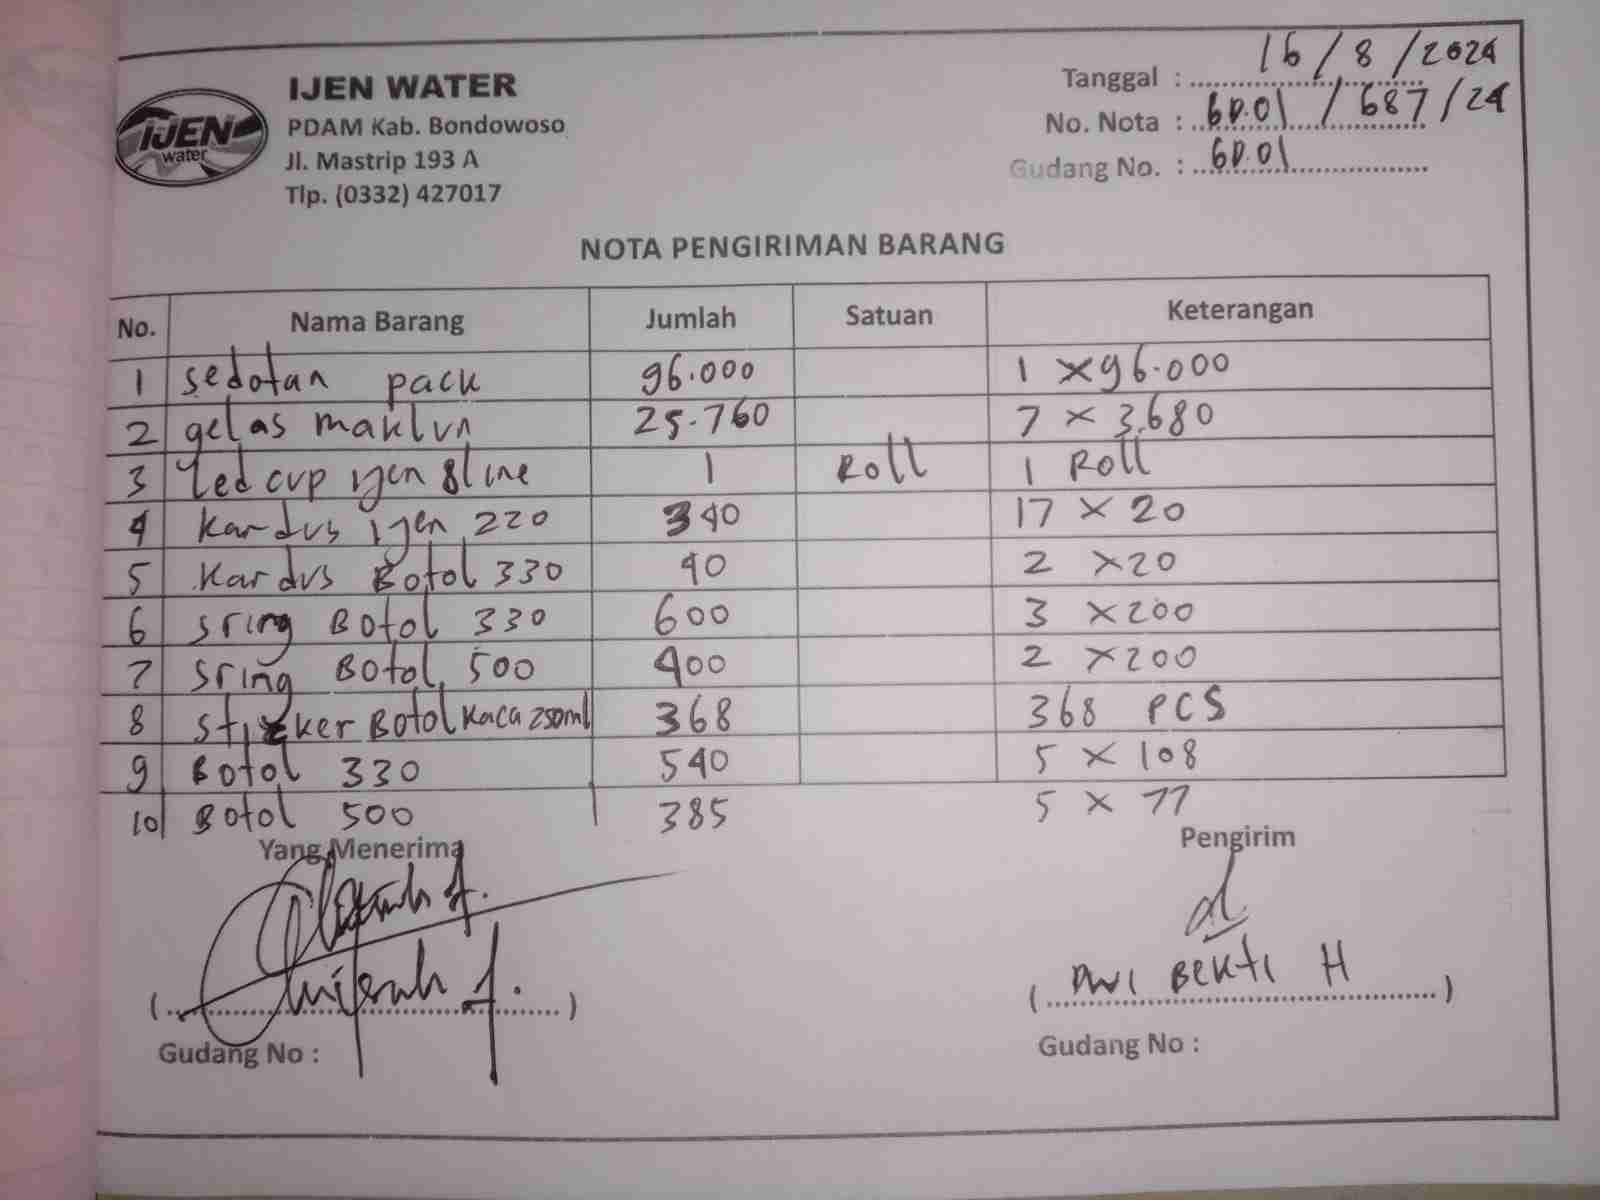 IJEN WATER
PDAM Kab. Bondowoso
Jl. Mastrip 193 A
Tlp. (0332) 427017
IJEN
water
Tanggal : 16 / 8 / 2024
No. Nota : GD.01 / 687 / 24
Gudang No. : GD.01
NOTA PENGIRIMAN BARANG
No. Nama Barang Jumlah Satuan Keterangan
1 sedotan pack 96.000 1 x 96.000
2 gelas maklun 25.760 7 x 3.680
3 Led cup ijen 8 line 1 Roll 1 Roll
4 kardus ijen 220 340 17 x 20
5 kardus Botol 330 40 2 x 20
6 sring Botol 330 600 3 x 200
7 sring Botol 500 400 2 x 200
8 sticker Botol kaca 250ml 368 368 PCS
9 Botol 330 540 5 x 108
10 Botol 500 385 5 x 77
Yang Menerima Pengirim
(..........) ( DWI BEKTI H )
Gudang No : Gudang No :